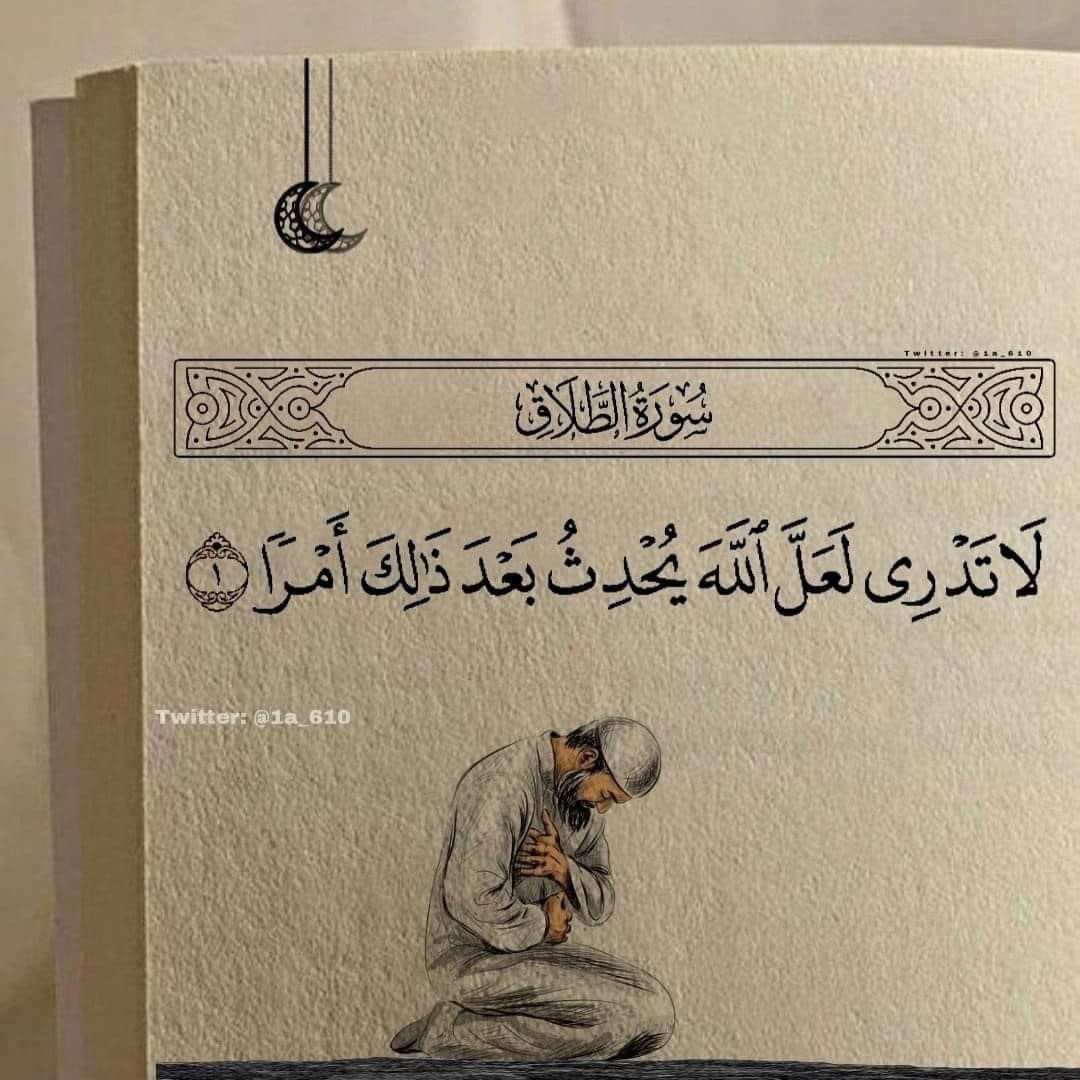 Twitter: @1a_610
سُورَةُ الطَّلَاقِ
لَا تَدْرِى لَعَلَّ ٱللَّهَ يُحْدِثُ بَعْدَ ذَٰلِكَ أَمْرًا ١
Twitter: @1a_610